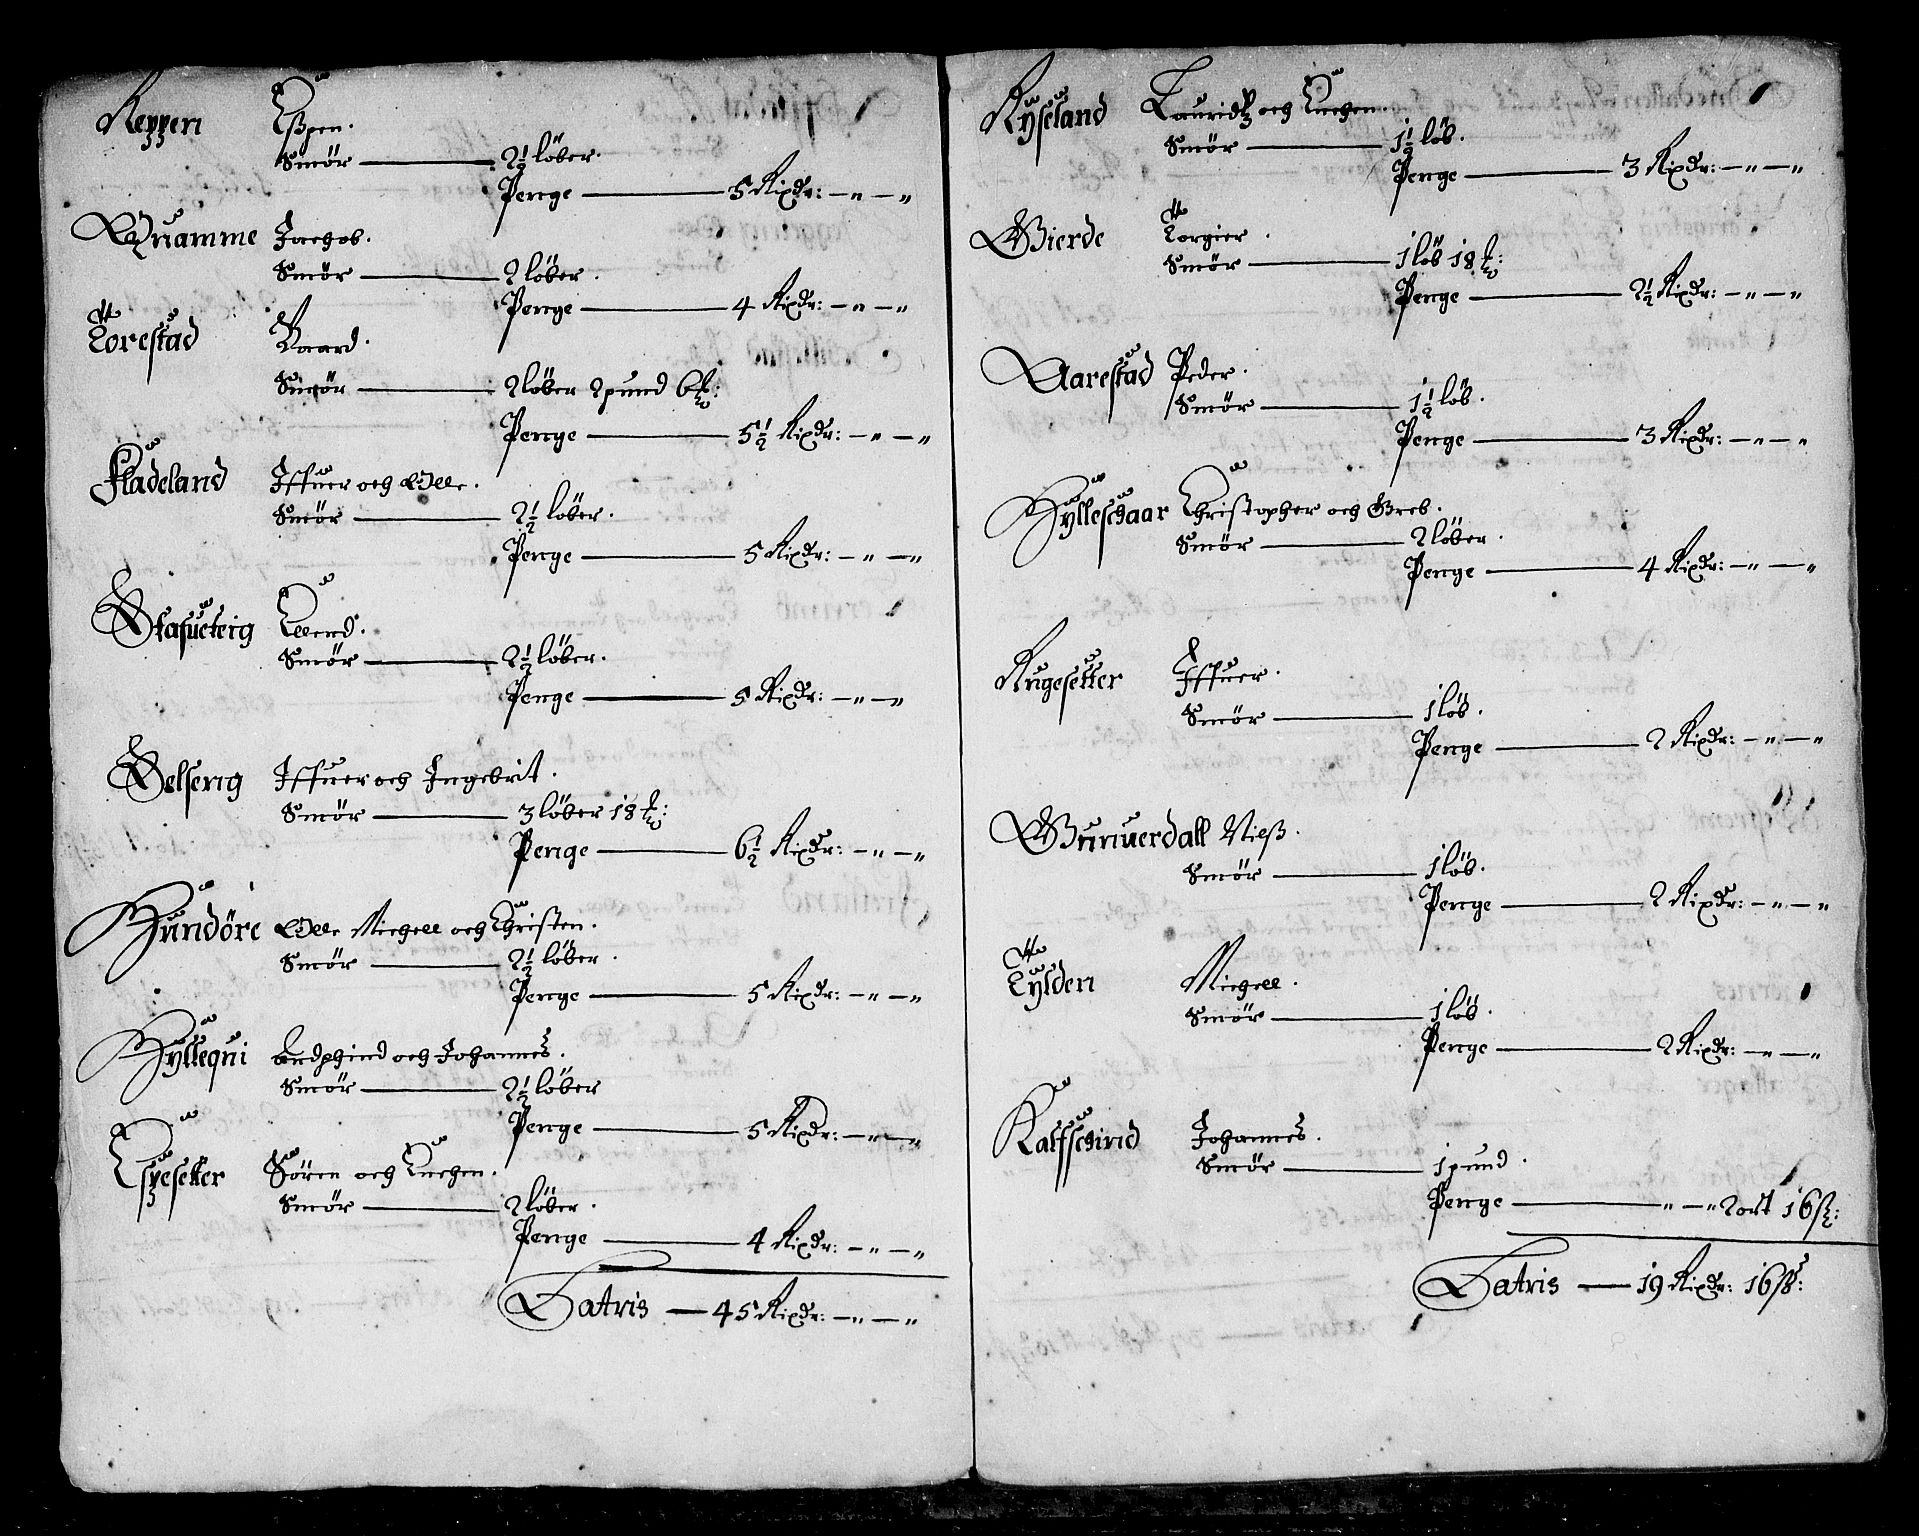 Reppen Eßpen.
Smör — 2½ löber.
Penge — 5 Rixdr: — „ — „
Quamme Jachob.
Smör — 2 löber.
Penge — 4 Rixdr: — „ — „
Torestad Baard.
Smör — 2 löber 2 pund 6 ℔:
Penge — 5½ Rixdr: — „ — „
Fladeland Iffuer och Olle.
Smör — 2½ löber.
Penge — 5 Rixdr: — „ — „
Stafueteig Ellend.
Smör — 2½ löber.
Penge — 5 Rixdr: — „ — „
Selseng Iffuer och Ingebrit.
Smör — 3 löber 18 ℔:
Penge — 6½ Rixdr: — „ — „
Hundöre Olle Michell och Christen.
Smör — 2½ löber.
Penge — 5 Rixdr: — „ — „
Hyllequi Endphind och Johannes.
Smör — 2½ löber
Penge — 5 Rixdr: — „ — „
Espesetter Sören och Knchen.
Smör — 2 löber.
Penge — 4 Rixdr: — „ — „
Latris — 45 Rixdr: — „ — „
Ryseland Lauridz och
Smör — 1½ löb.
Penge — 3 Rixdr: — „ — „
Gierde Torgier.
Smör — 1 löb 18 ℔:
Penge — 2½ Rixdr: — „ — „
Aarestad Peder.
Smör — 1½ löb.
Penge — 3 Rixdr: — „ — „
Hylleschaar Christopher och Greb.
Smör — 2 löber.
Penge — 4 Rixdr: — „ — „
Rugesetter Iffuer.
Smör — 1 löb.
Penge — 2 Rixdr: — „ — „
Gunuerdall Nielß.
Smör — 1 löb.
Penge — 2 Rixdr: — „ — „
Tylden Michell.
Smör — 1 löb.
Penge — 2 Rixdr: — „ — „
Kalfschind Johannes.
Smör — 1 pund.
Penge — „ — „ 2 ort 16 ß:
Latris — 19 Rixdr: 16 ß: